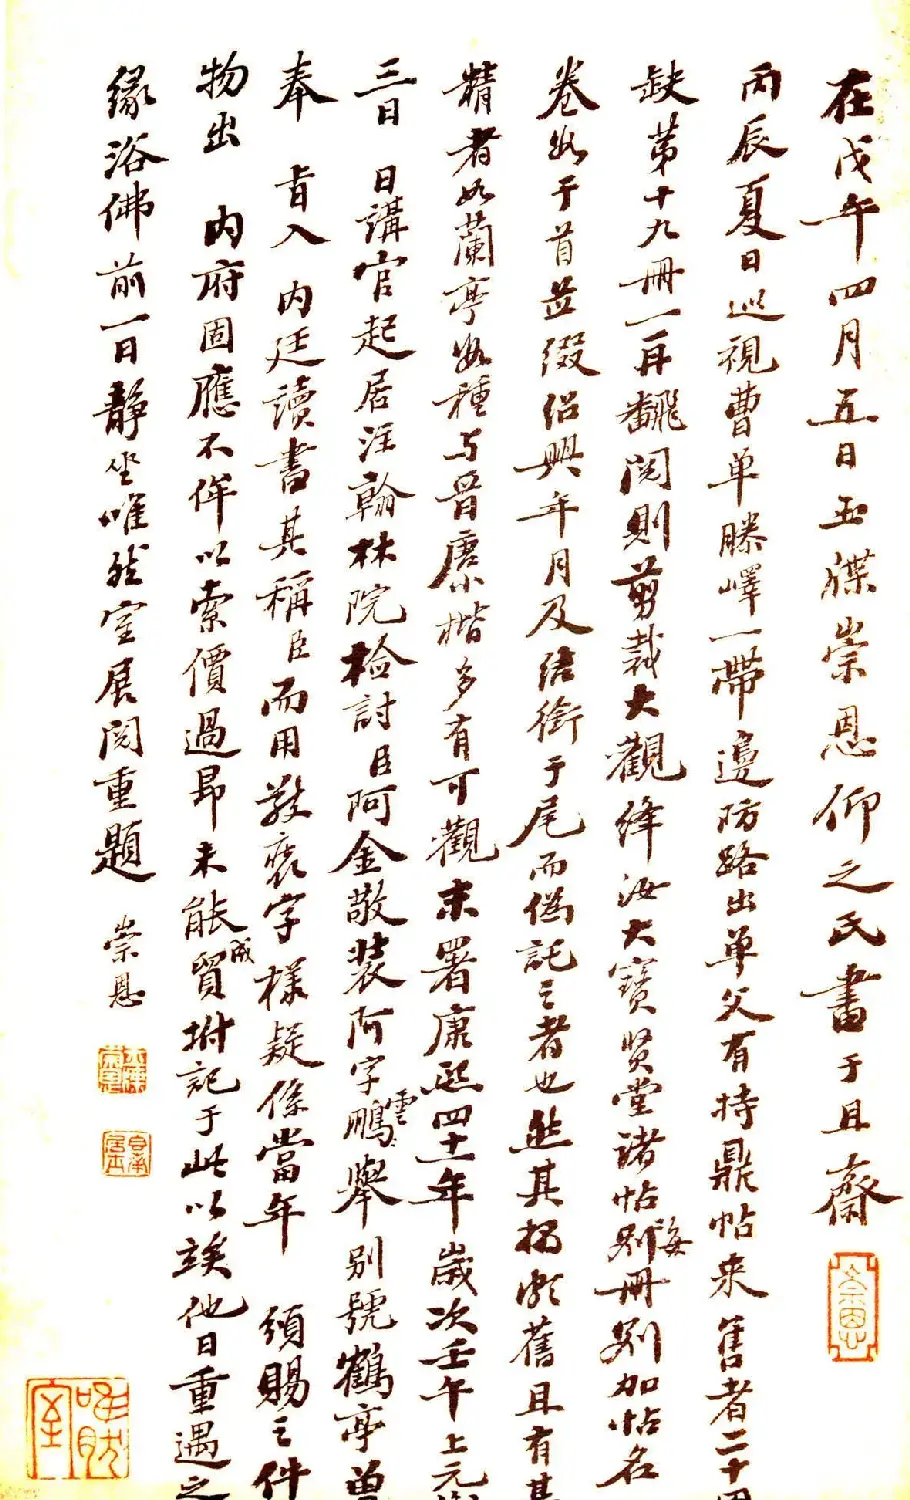 在戊午四月五日玉牒崇恩仰之氏書于且齋
丙辰夏日巡視曹单滕嶧一帶邊防路出单父有持鼎帖来售者二十
缺第十九冊一再繙閱則剪裁大觀絳汝大寶賢堂諸帖每冊別加帖名
卷數于首並綴紹興年月及結銜于尾而僞託之者也然其搨頗舊且有
精者如蘭亭數種与晉唐小楷多有可觀末署康熙四十一年歲次壬午上元
三日 日講官起居注翰林院檢討臣阿金敬裝阿字雲舉別號鶴亭曽
奉 旨入 内廷讀書其稱臣而用敬裝字樣疑係當年 頒賜之件
物出 内府固應不侔以索價過昻未能成貿坿記于此以竢他日重遇之
緣浴佛前一日靜坐唯然室展閱重題 崇恩
崇恩